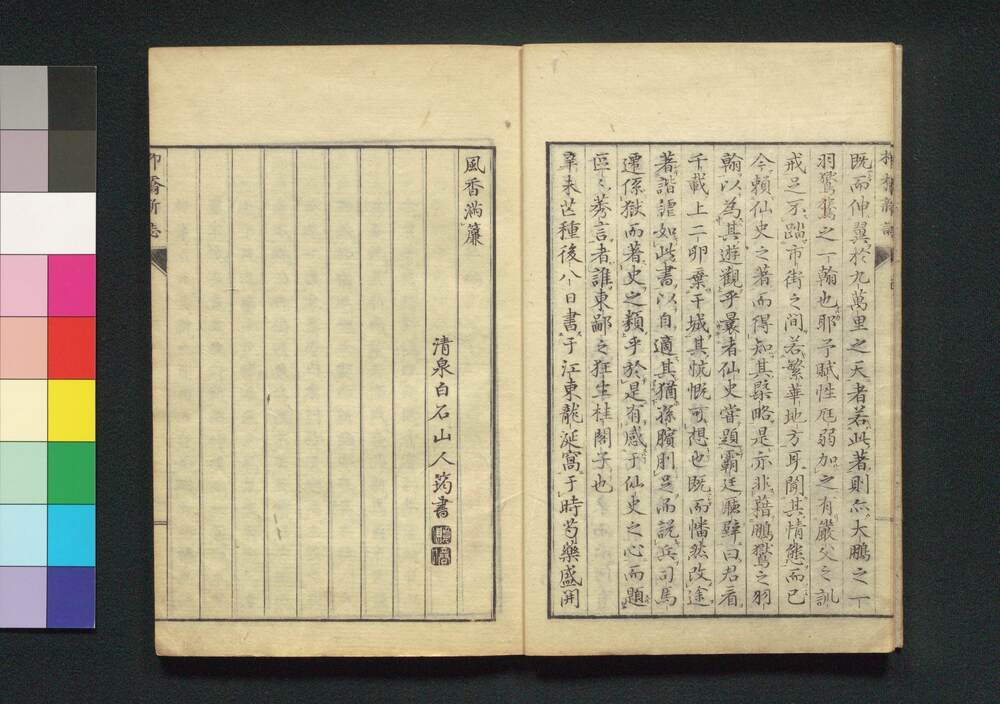 既而伸翼於九萬里之天者若此著則亦大鵬之一
羽鷺鷥之一翰也耶予賦性尫弱加之有嚴父之訓
戒足不踏市街之間若繁華地方耳聞其情態而已
今賴仙史之著而得知其槩略是亦非藉鵬鷽之羽
翰以為其遊觀乎曩者仙史嘗題霸廷廳壁曰君看
千載上二卵棄干城其忼慨可想也既而幡然改途
著諧謔如此書以自適其猶孫臏刖足而說兵司馬
遷係獄而著史之類乎於是有感于仙史之心而題
區〻莠言者誰東鄙之狂生桂閣子也
辛未芒種後八日書于江東龍涎窩于時芍藥盛開
風香滿簾
清泉白石山人筠書
柳橋新誌